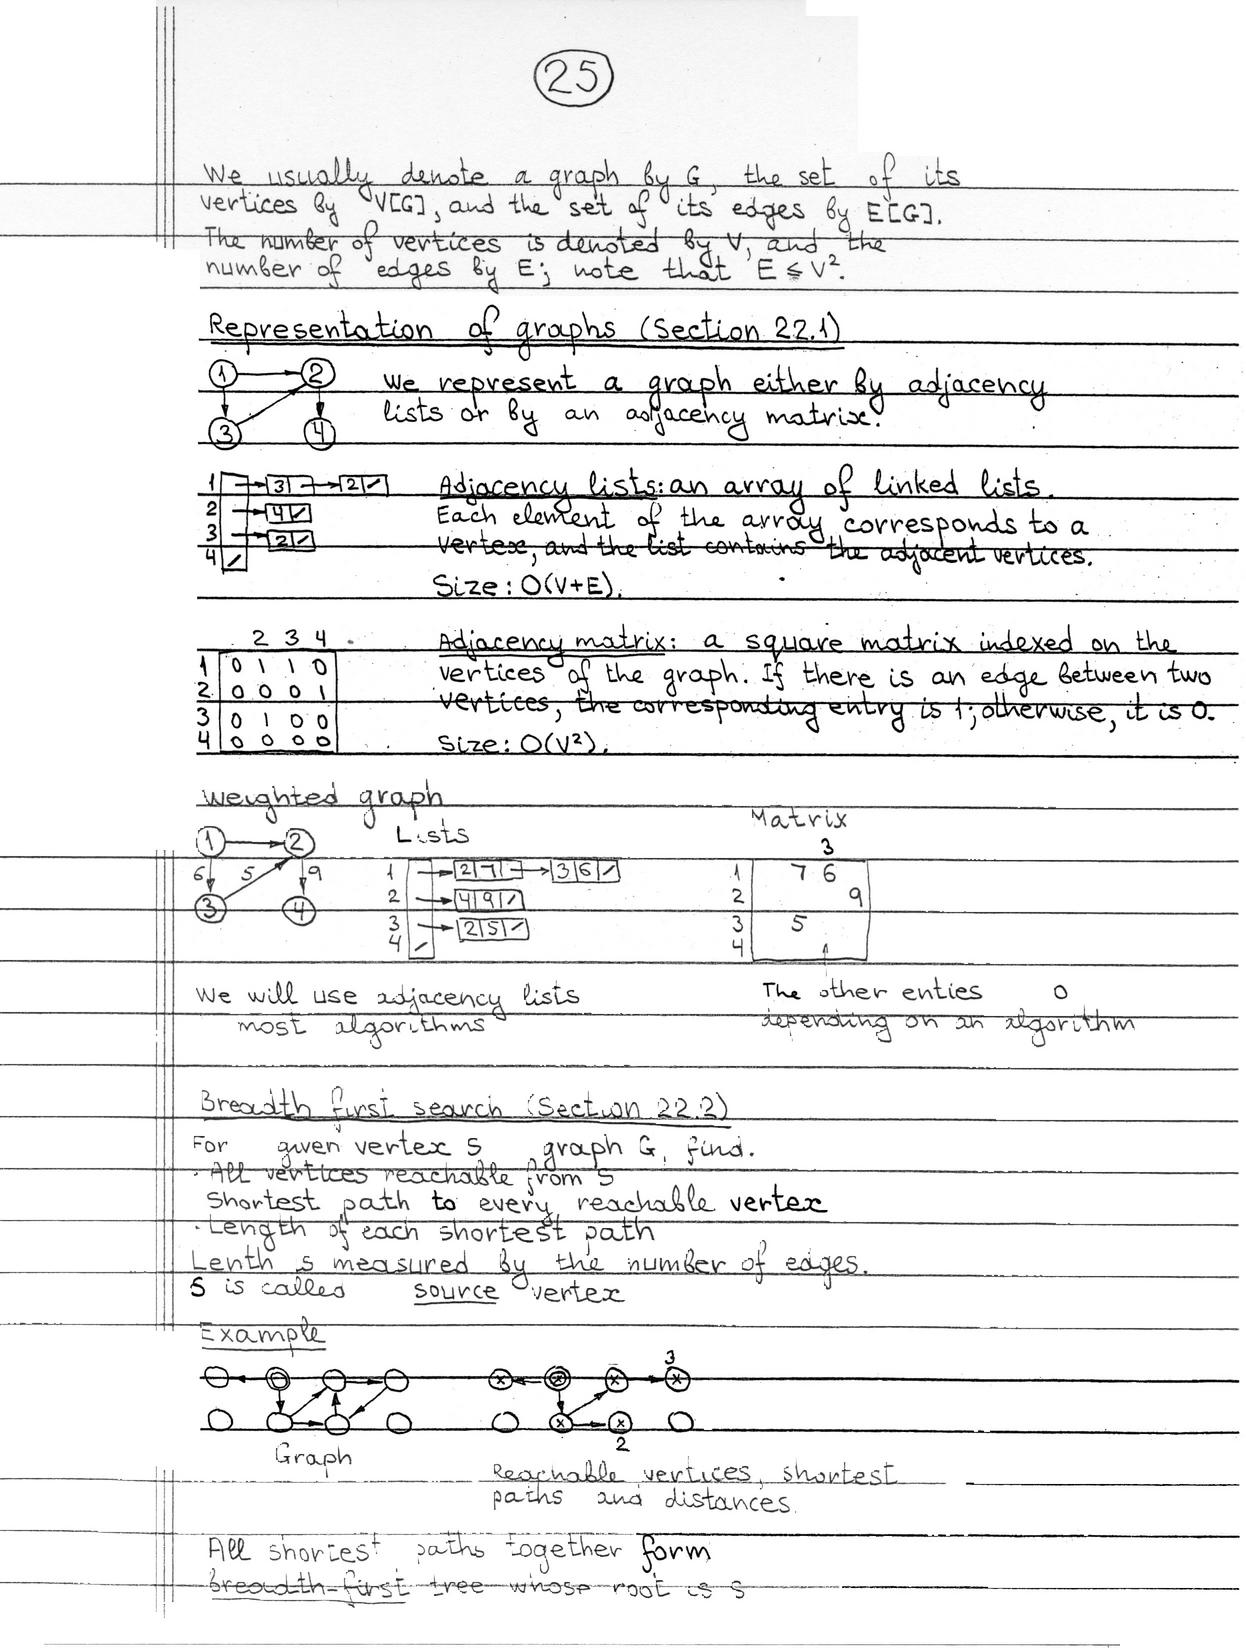 25
We usually denote a graph by G, the set of its
vertices by V[G], and the set of its edges by E[G].
The number of vertices is denoted by V, and the
number of edges by E; note that E ≤ V².
Representation of graphs (Section 22.1)
1 2
3 4
We represent a graph either by adjacency
lists or by an adjacency matrix.
1 3 2
2 4
3 2
4
Adjacency lists: an array of linked lists.
Each element of the array corresponds to a
vertex, and the list contains the adjacent vertices.
Size: O(V+E).
2 3 4
1 0 1 1 0
2 0 0 0 1
3 0 1 0 0
4 0 0 0 0
Adjacency matrix: a square matrix indexed on the
vertices of the graph. If there is an edge between two
vertices, the corresponding entry is 1; otherwise, it is 0.
Size: O(V²).
Weighted graph
1 2
6 5 9
3 4
Lists
1 2 7 3 6
2 4 9
3 2 5
4
Matrix
3
1 7 6
2 9
3 5
4
We will use adjacency lists
most algorithms
The other enties 0
depending on an algorithm
Breadth first search (Section 22.2)
For given vertex s graph G, find.
· All vertices reachable from s
Shortest path to every reachable vertex
· Length of each shortest path
Lenth s measured by the number of edges.
s is called source vertex
Example
Graph
3
x x x x
x x
2
Reachable vertices, shortest
paths and distances.
All shortest paths together form
breadth-first tree whose root is s